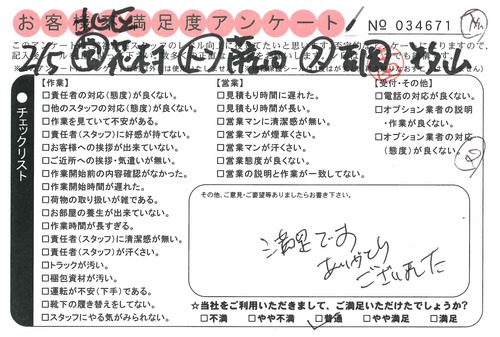 お客様満足度アンケート
No 034671
このアンケートは
【作業】
□責任者の対応(態度)が良くない。
□他のスタッフの対応(態度)が良くない。
□作業を見ていて不安がある。
□責任者(スタッフ)に好感が持てない。
□お客様への挨拶が出来ていない。
□ご近所への挨拶・気遣いが無い。
□作業開始前の内容確認がなかった。
□作業開始時間が遅れた。
□荷物の取り扱いが雑である。
□お部屋の養生が出来ていない。
□作業時間が長すぎる。
□責任者(スタッフ)に清潔感が無い。
□責任者(スタッフ)が汗くさい。
□トラックが汚い。
□梱包資材が汚い。
□運転が不安(下手)である。
□靴下の履き替えをしてない。
□スタッフにやる気がみられない。
【営業】
□見積もり時間に遅れた。
□見積もり時間が長い。
□営業マンに清潔感が無い。
□営業マンが煙草くさい。
□営業マンが汗くさい。
□営業態度が良くない。
□営業の説明と作業が一致してない。
【受付・その他】
□電話の対応が良くない。
□オプション業者の説明
・作業が良くない。
□オプション業者の対応
(態度)が良くない。
チェックリスト
その他、ご意見・ご要望等ありましたらお書き下さい。
満足です
ありがとう
ございました
☆当社をご利用いただきまして、ご満足いただけたでしょうか?
□不満 □やや不満 □普通 □やや満足 □満足